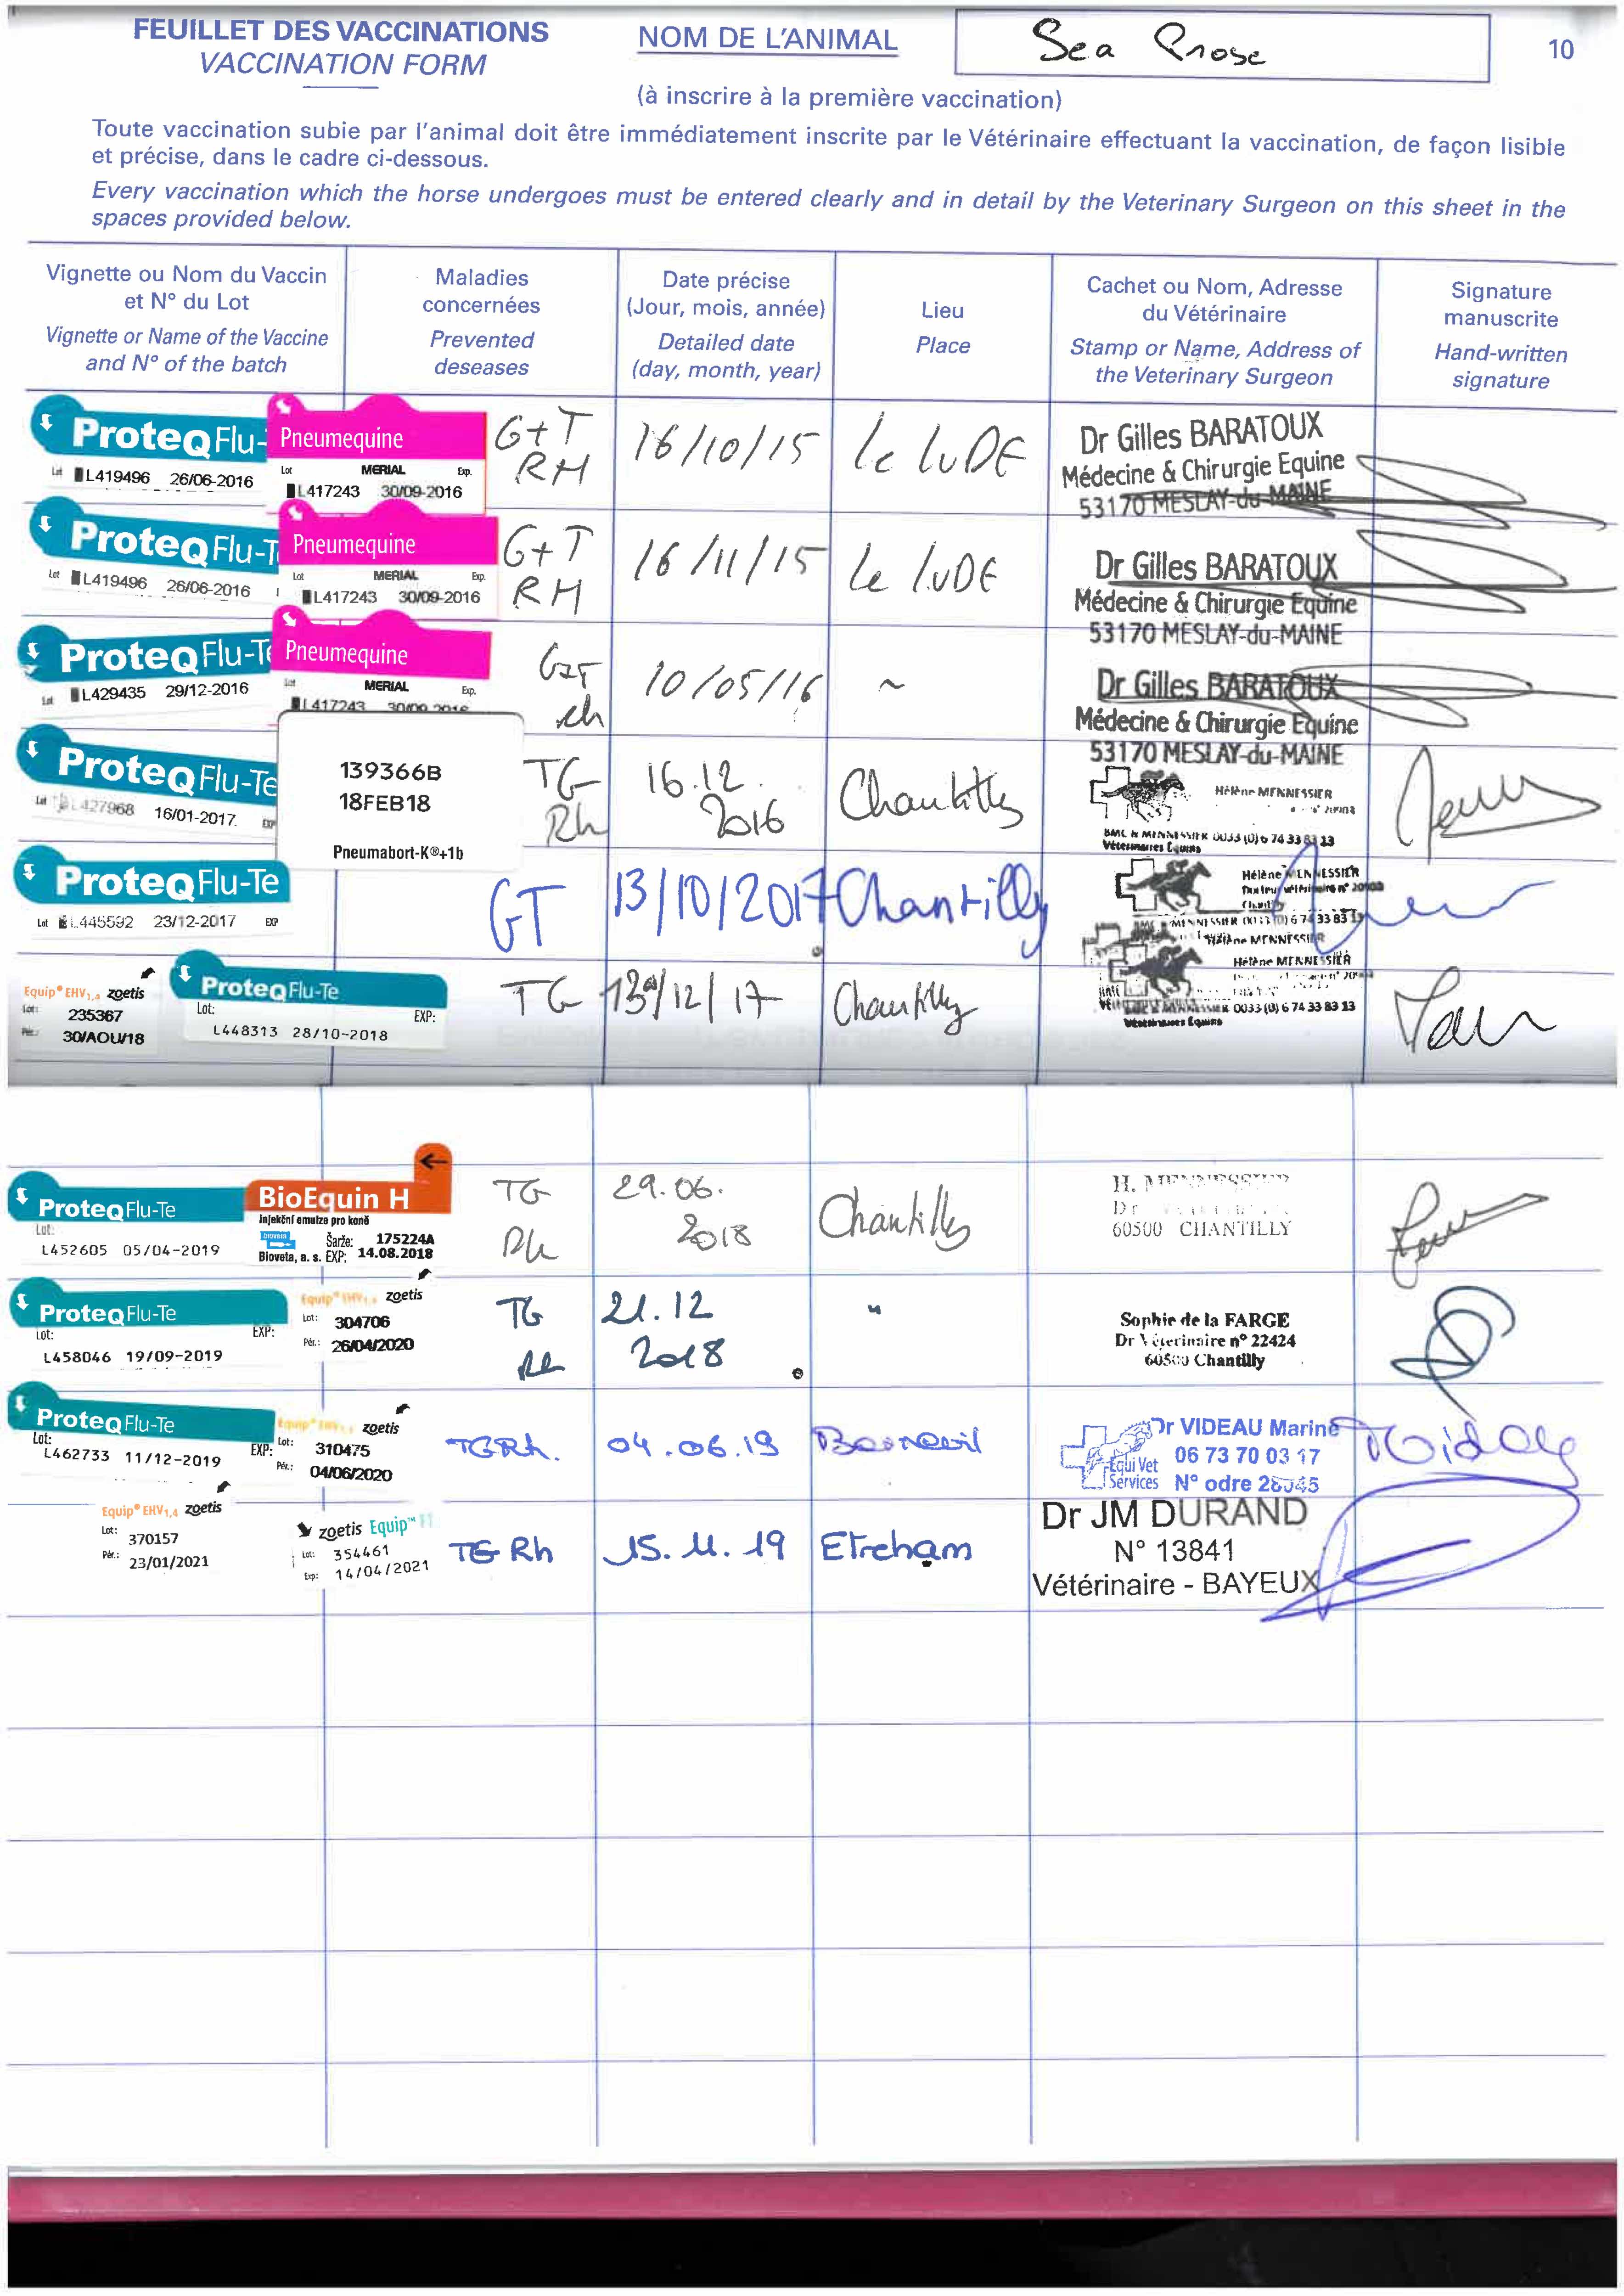 FEUILLET DES VACCINATIONS
VACCINATION FORM
NOM DE L'ANIMAL
Sea Prose
10
(à inscrire à la première vaccination)
Toute vaccination subie par l'animal doit être immédiatement inscrite par le Vétérinaire effectuant la vaccination, de façon lisible
et précise, dans le cadre ci-dessous.
Every vaccination which the horse undergoes must be entered clearly and in detail by the Veterinary Surgeon on this sheet in the
spaces provided below.
Vignette ou Nom du Vaccin
et N° du Lot
Vignette or Name of the Vaccine
and N° of the batch
Maladies
concernées
Prevented
deseases
Date précise
(Jour, mois, année)
Detailed date
(day, month, year)
Lieu
Place
Cachet ou Nom, Adresse
du Vétérinaire
Stamp or Name, Address of
the Veterinary Surgeon
Signature
manuscrite
Hand-written
signature
ProteqFlu-
Lot L419496 26/06-2016
Pneumequine
Lot MERIAL Exp.
L417243 30/09-2016
G+T
RH
16/10/15
Le LuDE
Dr Gilles BARATOUX
Médecine & Chirurgie Equine
53170 MESLAY-du-MAINE
ProteqFlu-T
Lot L419496 26/06-2016
Pneumequine
Lot MERIAL Exp.
L417243 30/09-2016
G+T
RH
16/11/15
Le LuDE
Dr Gilles BARATOUX
Médecine & Chirurgie Equine
53170 MESLAY-du-MAINE
ProteqFlu-Te
Lot L429435 29/12-2016
Pneumequine
Lot MERIAL Exp.
L417243 30/09-2016
10/05/16
~
Dr Gilles BARATOUX
Médecine & Chirurgie Equine
53170 MESLAY-du-MAINE
ProteqFlu-Te
Lot L427968 16/01-2017 EXP
139366B
18FEB18
Pneumabort-K®+1b
TG
Rh
16.12.
2016
Chantilly
Hélène MENNESSIER
BMC & MENNESSIER 0033 (0)6 74 33 83 13
Vétérinaires Equins
ProteqFlu-Te
Lot L445592 23/12-2017 EXP
GT
13/10/2017
Chantilly
Hélène MENNESSIER
Docteur vétérinaire n° 20908
Chantilly
MENNESSIER 0033 (0)6 74 33 83 13
Hélène MENNESSIER
Equip® EHV1,4 zoetis
Lot: 235367
Pér.: 30/AOU/18
ProteqFlu-Te
Lot: EXP:
L448313 28/10-2018
TG
13/12/17
Chantilly
Hélène MENNESSIER
0033 (0)6 74 33 83 13
Vétérinaires Equins
ProteqFlu-Te
Lot:
L452605 05/04-2019
BioEquin H
Injekční emulze pro koně
BIOVETA Šarže: 175224A
Bioveta, a. s. EXP: 14.08.2018
TG
Rh
29.06.
2018
Chantilly
H. MENNESSIER
Dr
60500 CHANTILLY
ProteqFlu-Te
Lot: EXP:
L458046 19/09-2019
Equip® EHV1,4 zoetis
Lot: 304706
Pér.: 26/04/2020
TG
Rh
21.12
2018
"
Sophie de la FARGE
Dr Vétérinaire n° 22424
60500 Chantilly
ProteqFlu-Te
Lot: EXP:
L462733 11/12-2019
Equip® EHV1,4 zoetis
Lot: 310475
Pér.: 04/06/2020
TGRh.
04.06.19
Dr VIDEAU Marine
06 73 70 03 17
Equi Vet
Services N° odre 26045
Equip® EHV1,4 zoetis
Lot: 370157
Pér.: 23/01/2021
zoetis Equip™ FT
Lot: 354461
Exp: 14/04/2021
TG Rh
15.11.19
Etreham
Dr JM DURAND
N° 13841
Vétérinaire - BAYEUX